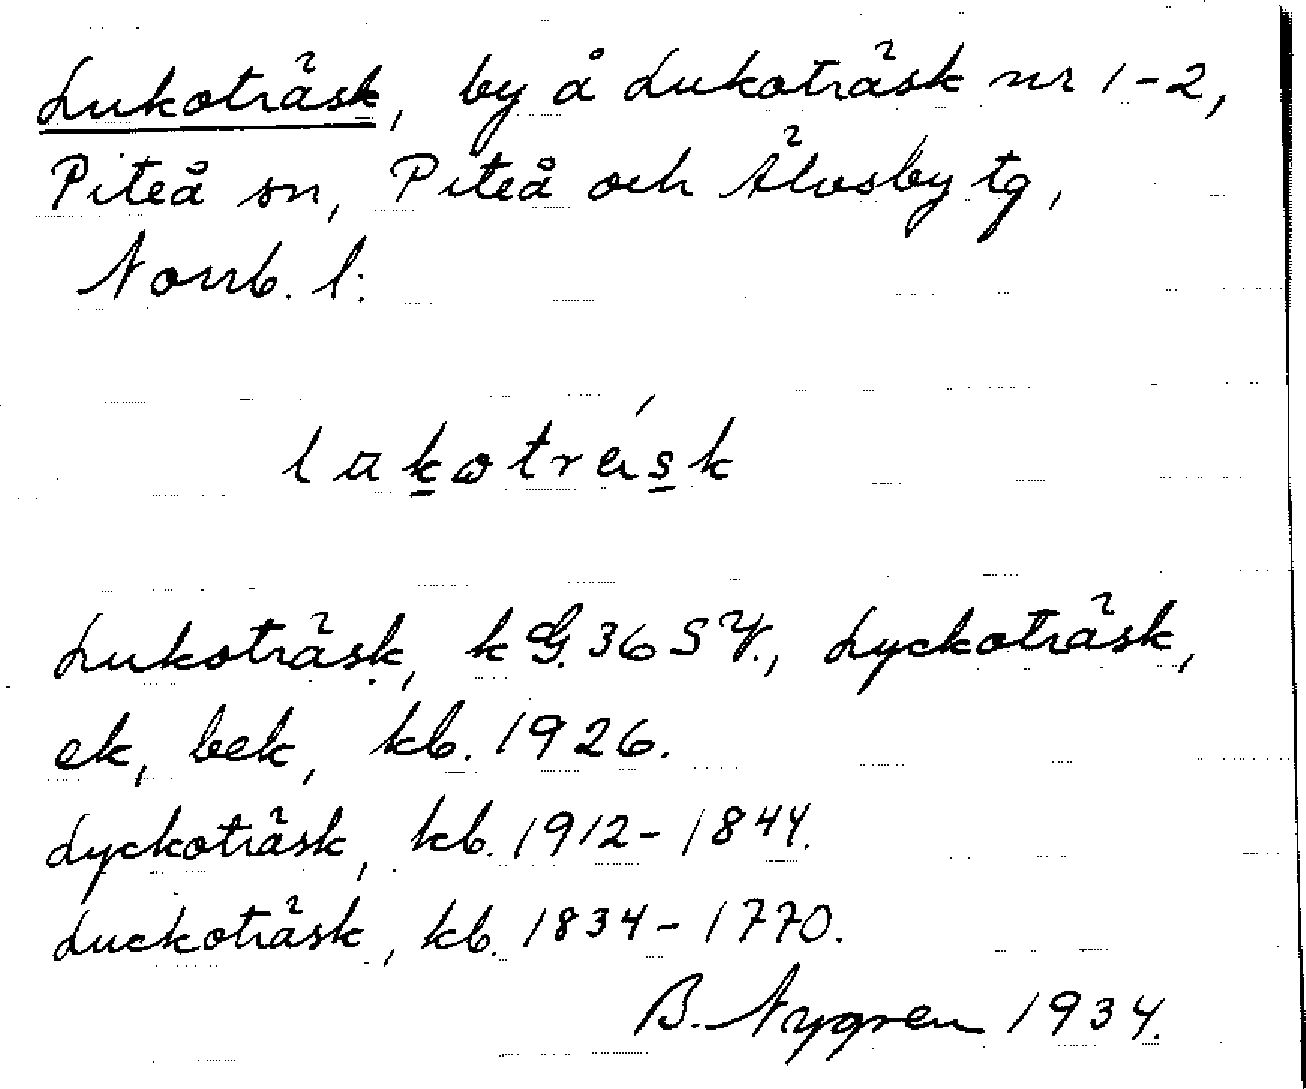 Lukoträsk, by å Lukoträsk nr 1-2,
Piteå sn, Piteå och Älvsby tg,
Norrb. l:
Lukoträsk, k G. 36 S V., Lyckoträsk,
ek, bek, kb. 1926.
Lyckoträsk, kb. 1912-1844.
Luckoträsk, kb. 1834-1770.
B. Nygren 1934.